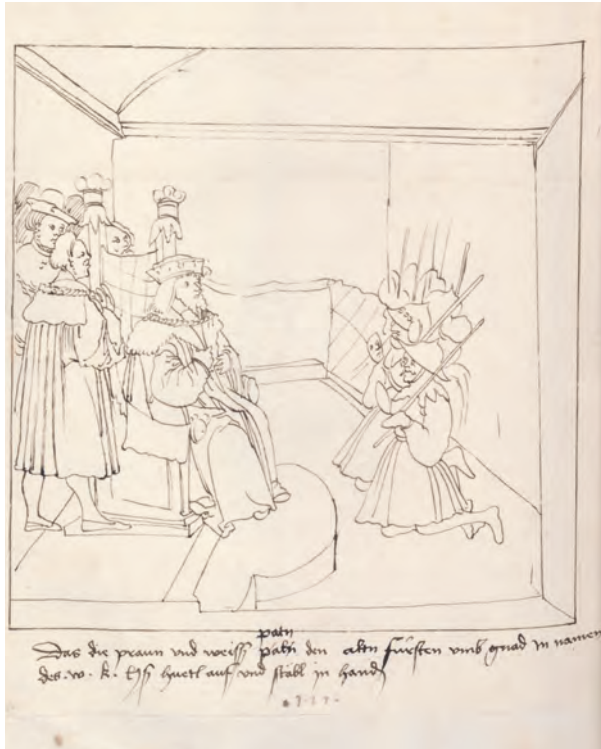 patn
Das die praun vnd weiss patn den altn fürsten vmb gnad in namen
des . w . k . huetl auf vnd stäbl in hand